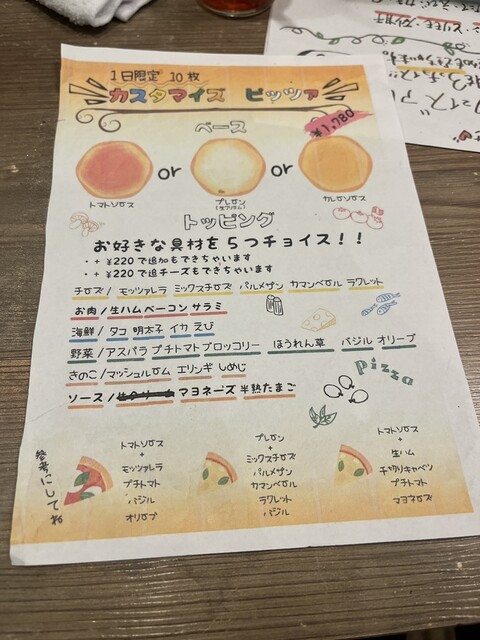 1日限定 10枚
カスタマイズ ピッツァ
ベース
¥1,780
or
or
トマトソース
プレーン
(生クリーム)
カレーソース
トッピング
お好きな具材を5つチョイス!!
・+ ¥220で追加もできちゃいます
・+ ¥220で追チーズもできちゃいます
チーズ/ モッツァレラ ミックスチーズ パルメザン カマンベール ラクレット
お肉/生ハム ベーコン サラミ
海鮮/ タコ 明太子 イカ えび
野菜/アスパラ プチトマト ブロッコリー ほうれん草 バジル オリーブ
きのこ/マッシュルーム エリンギ しめじ
ソース/生クリーム マヨネーズ 半熟たまご
pizza
参考にしてね
トマトソース
+
モッツァレラ
プチトマト
バジル
オリーブ
プレーン
+
ミックスチーズ
パルメザン
カマンベール
ラクレット
バジル
トマトソース
+
生ハム
千切りキャベツ
プチトマト
マヨネーズ